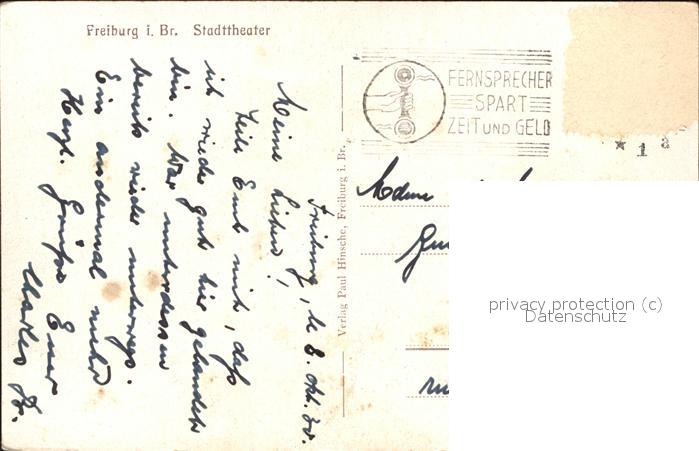 Freiburg i. Br. Stadttheater
FERNSPRECHER
SPART
ZEIT UND GELD
* 1 a
Verlag Paul Hinsche, Freiburg i. Br.
Freiburg, 8. Okt. 30.
Meine Lieben!
Teile Euch mit, daß
ich wieder gut hier gelandet
bin. War unterdessen
bereits wieder unterwegs.
Ein andermal mehr
Herzl. Grüße Euer
Mdme
privacy protection (c)
Datenschutz